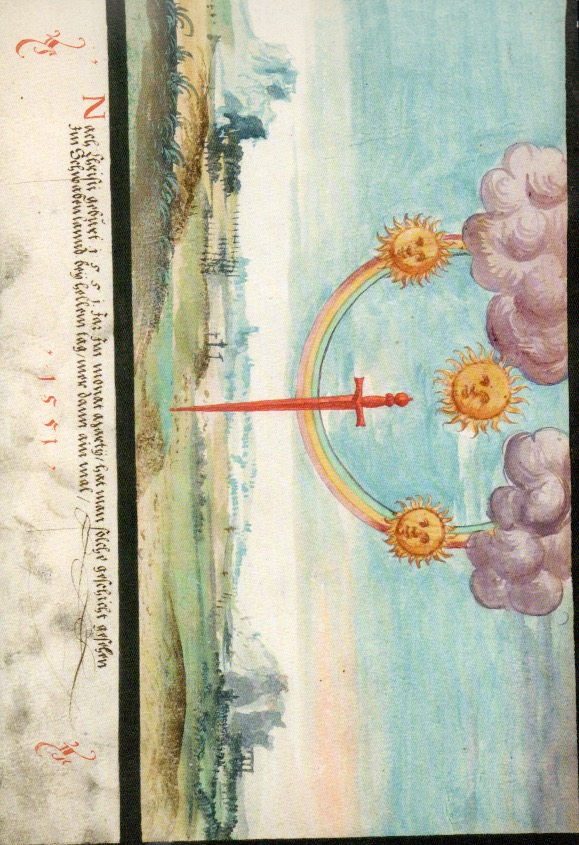 Nach Christi gebürt 1551 Jar Jm monat marty/ hat man solche geschicht gesehen
Jm Schwabenlannd bey hellem tag/ mer dann ain mal/
· 1551 ·